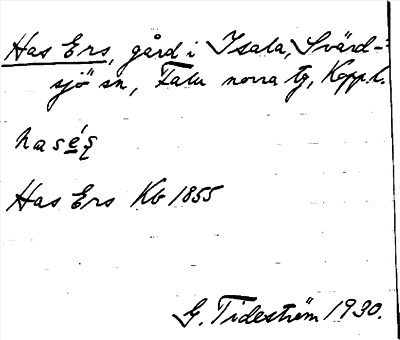 Has Ers, gård i Isala, Svärd-
sjö sn, Falu norra tg, Kopp.l.
Has Ers Kb 1855
G. Tideström 1930.